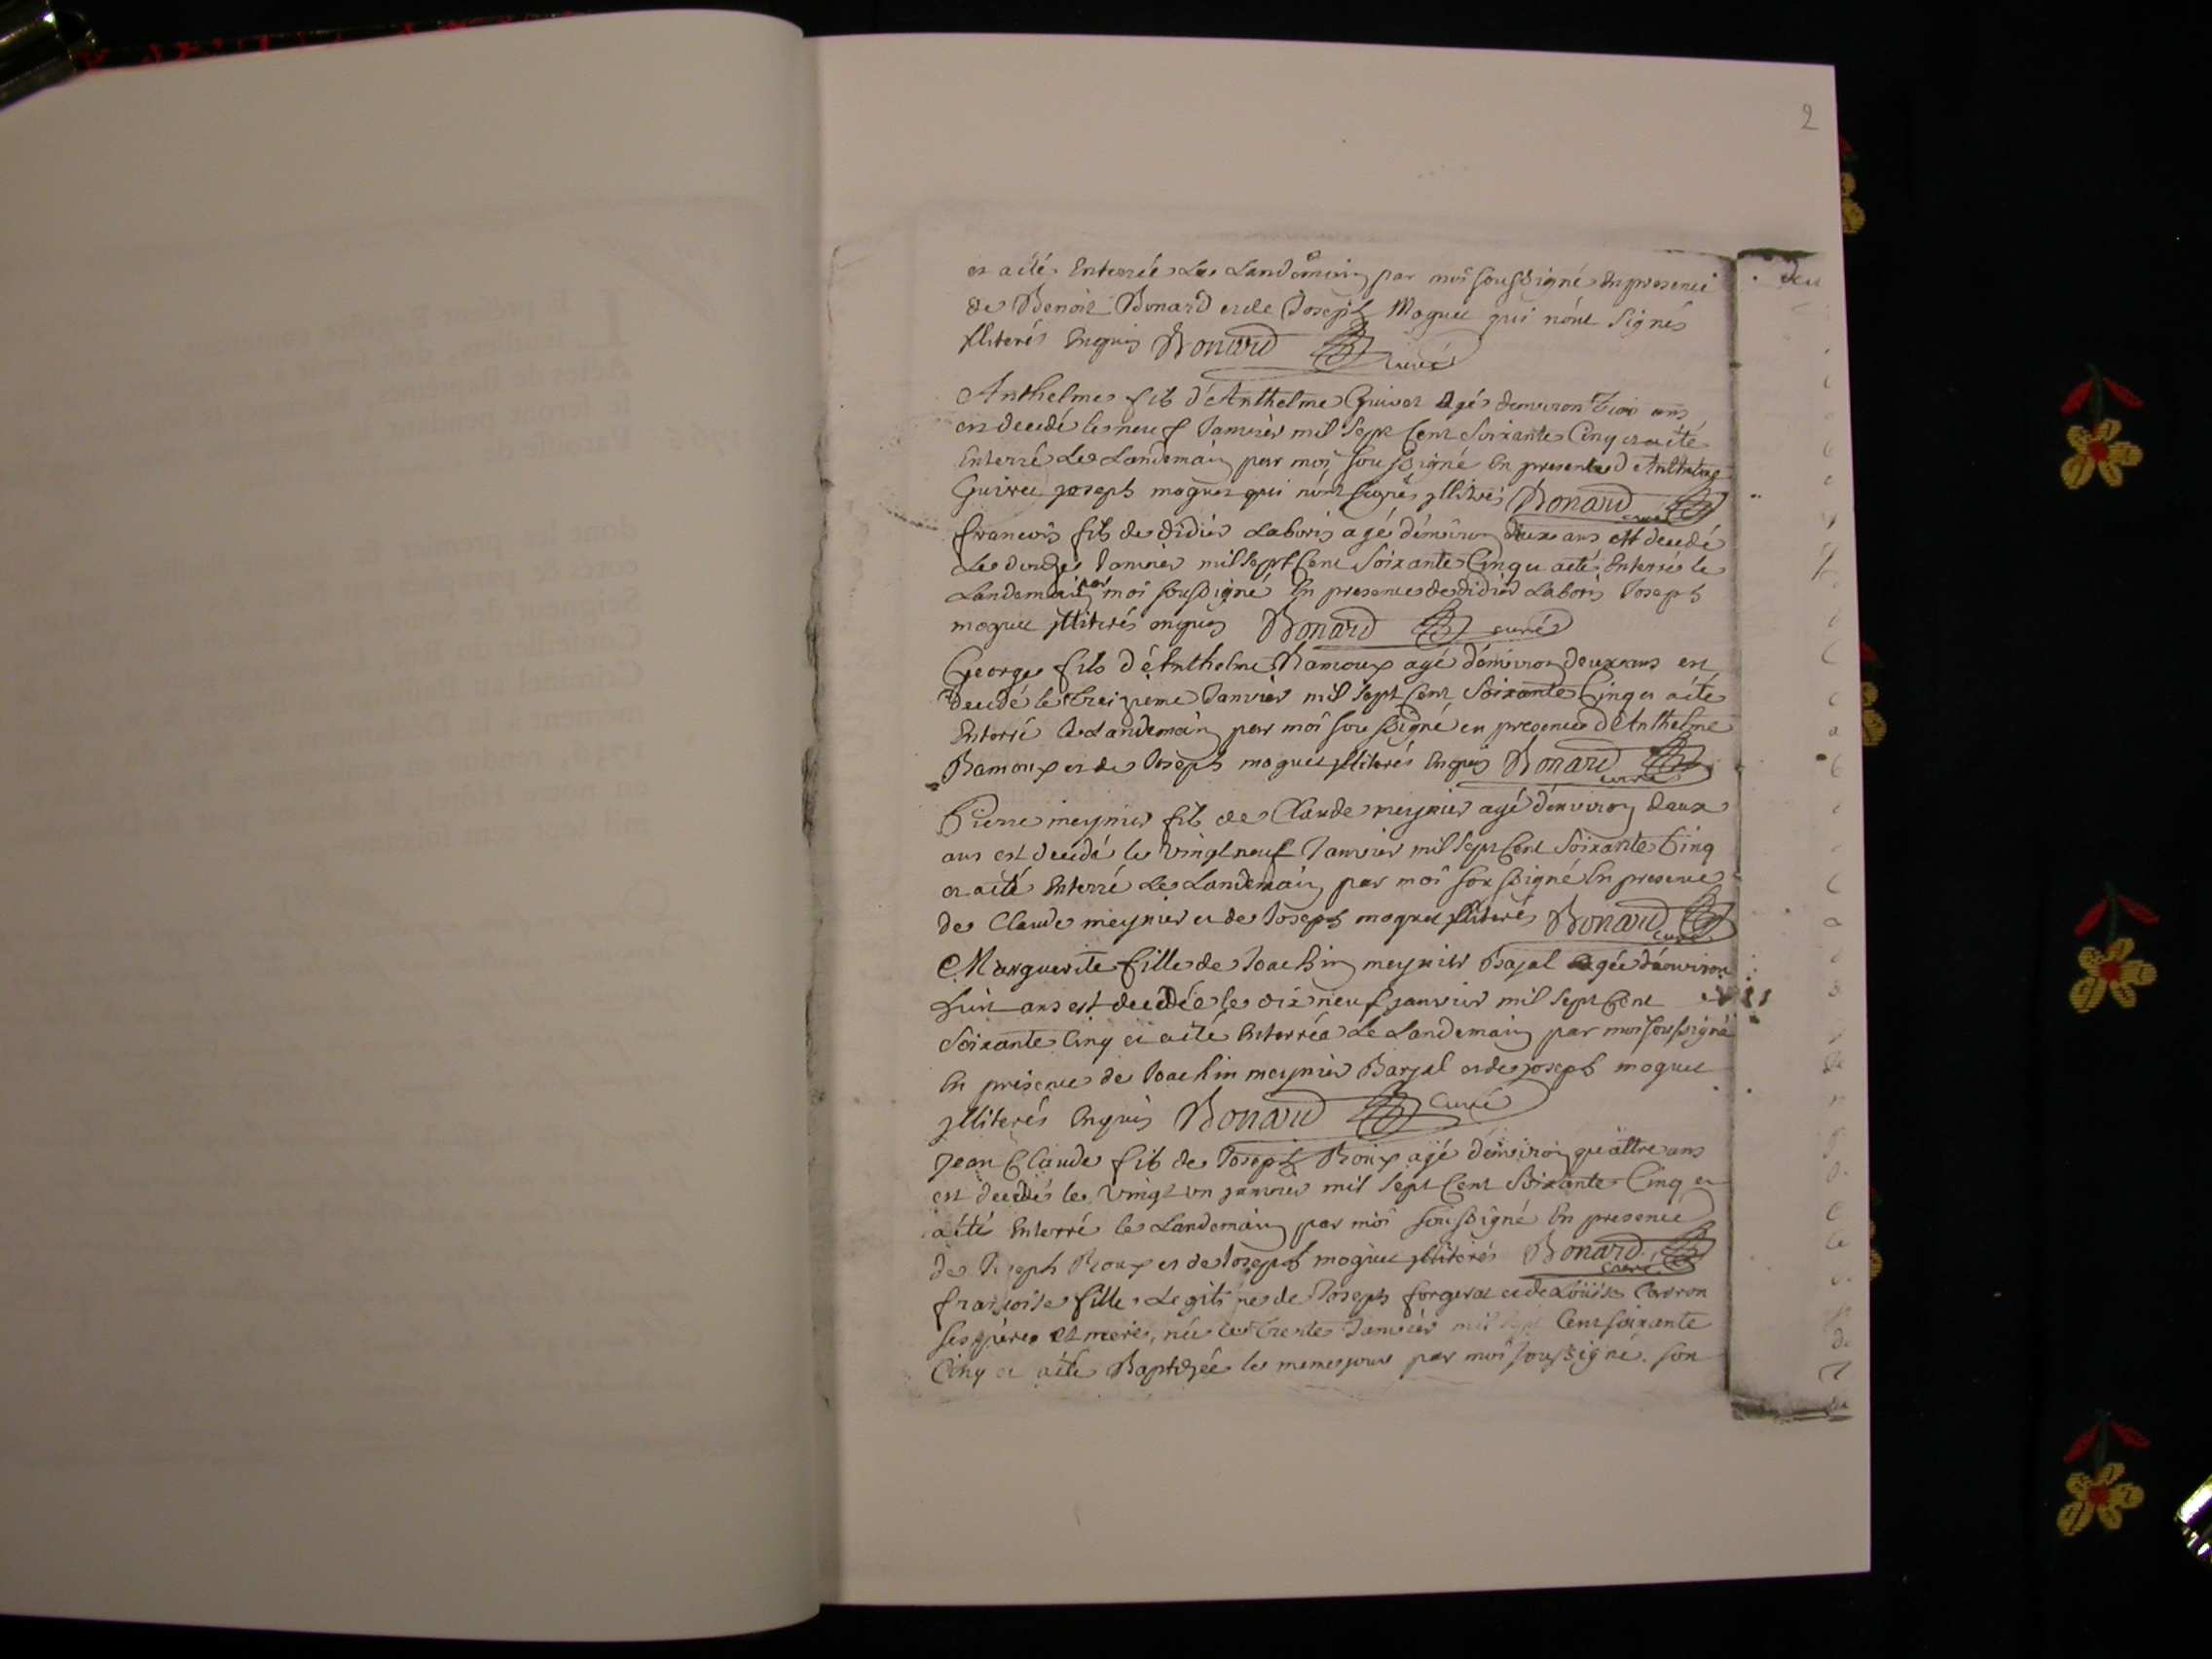 2
et aété Enterrée Le Landemain par moi soussigné En presence
de Benoit Bonard et de Joseph Moguet qui nónt signés
illiterés Enquis Bonard curé
Anthelme fils d'Anthelme Guivet Agé denviron trois ans
est decedé le neuf Janvier mil sept Cent Soixante Cinq et aété
Enterré Le Landemain par moi soussigné En presence d'Anthelme
Guivet joseph moguet qui nónt signés jlliterés Bonard curé
francois fils de didier Laboris agé dénviron deux ans est decedé
Le douze Janvier mil sept Cent Soixante Cinq et aété Enterré le
Landemain par moi soussigné En presence de didier Laboris Joseph
moguet jlliterés enquis Bonard curé
George fils d'Anthelme Ramoux agé dénviron deux ans est
decedé le treizieme Janvier mil sept Cent Soixante Cinq et aété
Enterré Le Landemain par moi soussigné en presence d'Anthelme
Ramoux et de Joseph moguet jlliterés Enquis Bonard curé
Pierre meynier fils de Claude meynier agé dénviron deux
ans est decedé le vingt neuf Janvier mil sept Cent Soixante Cinq
et aété Enterré Le Landemain par moi soussigné En presence
de Claude meynier et de Joseph moguet jlliterés Bonard curé
Marguerite fille de Joachim meynier Bajal agée dénviron
huit ans est decedée le dix neuf janvier mil sept Cent
Soixante Cinq et aété Enterrée Le Landemain par moi soussigné
En presence de Joachim meynier Barjal et de joseph moguet
jlliterés Enquis Bonard Curé
Jean Claude fils de Joseph Roux agé dénviron quattre ans
est decedé le vingt un janvier mil sept Cent Soixante Cinq et
aété Enterré le Landemain par moi soussigné En presence
de Joseph Roux et de Joseph moguet jlliterés Bonard curé
francoise fille Legitime de Joseph forgerat et de Loüise Carron
ses pères et mere, née le trente Janvier mil sept Cent soixante
Cinq et aété Baptizée le meme jour par moi soussigné. son